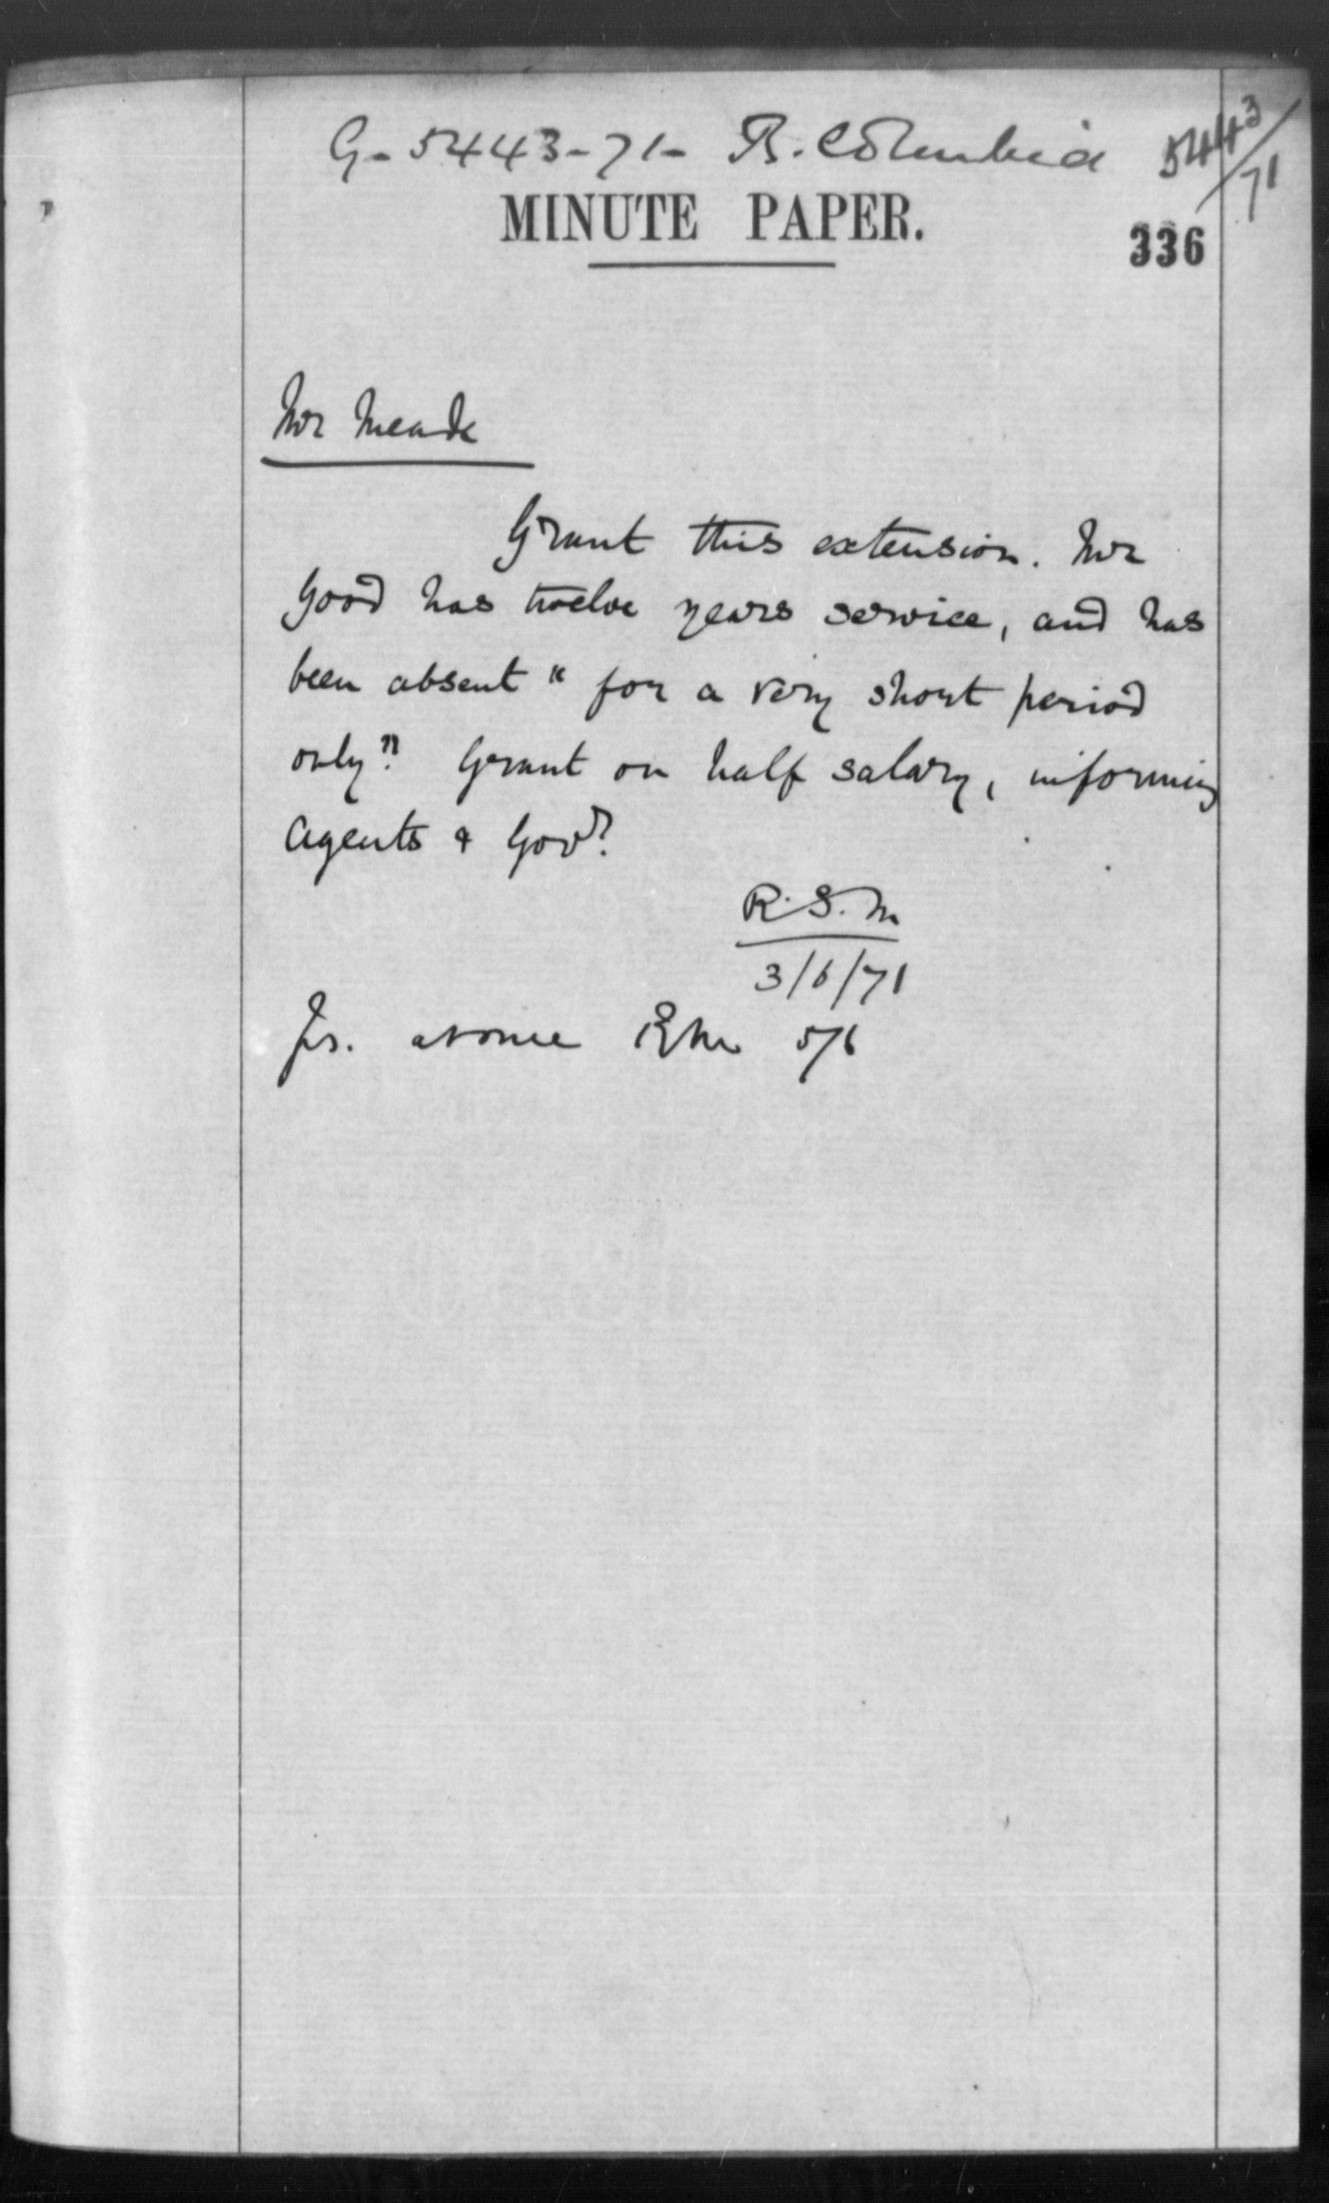 G- 5443-71- B. Columbia 5443/71
MINUTE PAPER.
336
Mr Meade
Grant this extension. Mr
Good has twelve years service, and has
been absent "for a very short period
only". Grant on half salary, informing
Agents & Govr.
R.S.M
3/6/71
at once RM 5/6